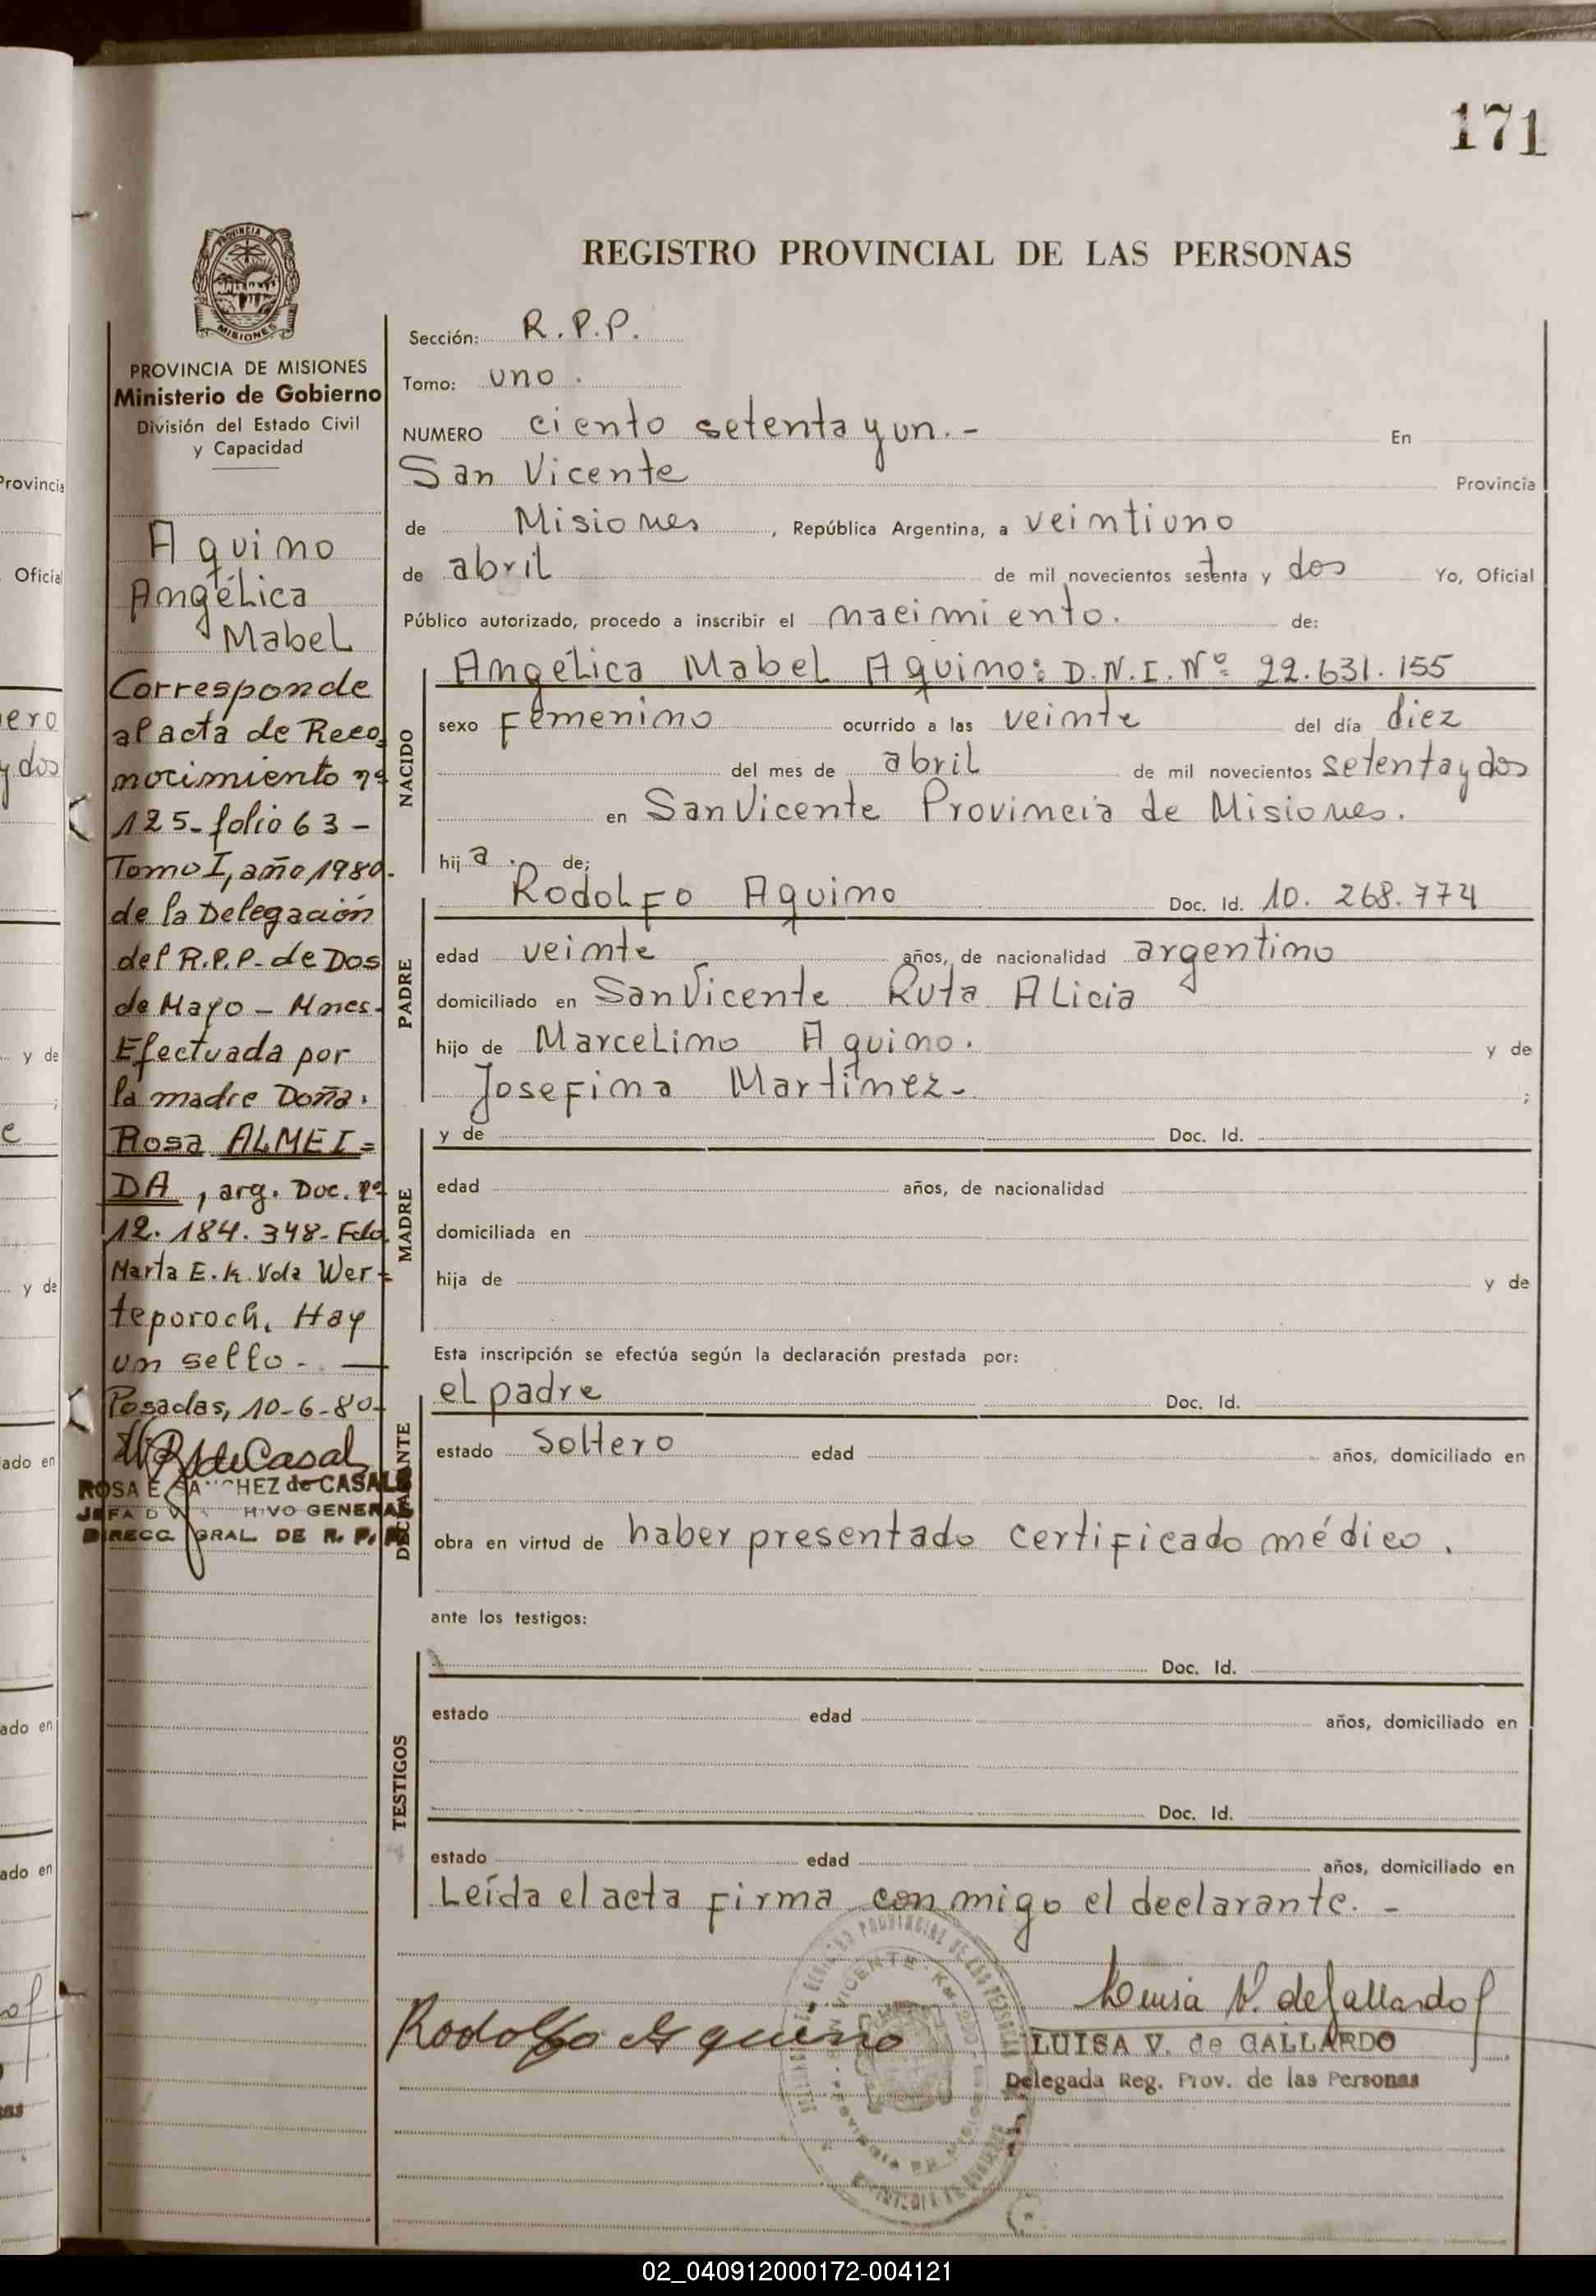 171
REGISTRO PROVINCIAL DE LAS PERSONAS
PROVINCIA DE
MISIONES
PROVINCIA DE MISIONES
Ministerio de Gobierno
División del Estado Civil
y Capacidad
Aquino
Angélica
Mabel
Corresponde
al acta de Reco
nocimiento nº
125-folio 63-
Tomo I, año 1980.
de la Delegación
del R.P.P. de Dos
de Mayo - Mnes-
Efectuada por
la madre Doña.
Rosa ALMEI=
DA, arg. Doc. nº
12.184.348- Fdo
Marta E. K. Vda Wer=
teporoch. Hay
un sello.-
Posadas, 10-6-80-
ROSA E. SANCHEZ de CASALS
Sección: R.P.P.
Tomo: uno.
NUMERO ciento setenta y un.- En
San Vicente Provincia
de Misiones, República Argentina, a veintiuno
de abril de mil novecientos setenta y dos Yo, Oficial
Público autorizado, procedo a inscribir el nacimiento. de:
NACIDO
Angélica Mabel Aquino: D.N.I. Nº 22.631.155
sexo Femenino ocurrido a las veinte del día diez
del mes de abril de mil novecientos setenta y dos
en San Vicente Provincia de Misiones.
hija. de;
PADRE
Rodolfo Aquino Doc. Id. 10.268.774
edad veinte años, de nacionalidad argentino
domiciliado en San Vicente Ruta Alicia
hijo de Marcelino Aquino. y de
Josefina Martínez- ;
MADRE
y de Doc. Id.
edad años, de nacionalidad
domiciliada en
hija de y de
Esta inscripción se efectúa según la declaración prestada por:
el padre Doc. Id.
estado soltero edad años, domiciliado en
obra en virtud de haber presentado certificado médico.
ante los testigos:
TESTIGOS
Doc. Id.
estado edad años, domiciliado en
Doc. Id.
estado edad años, domiciliado en
Leída el acta firma conmigo el declarante.-
Rodolfo Aquino
Luisa V. de Gallardo
LUISA V. de GALLARDO
Delegada Reg. Prov. de las Personas
02_040912000172-004121